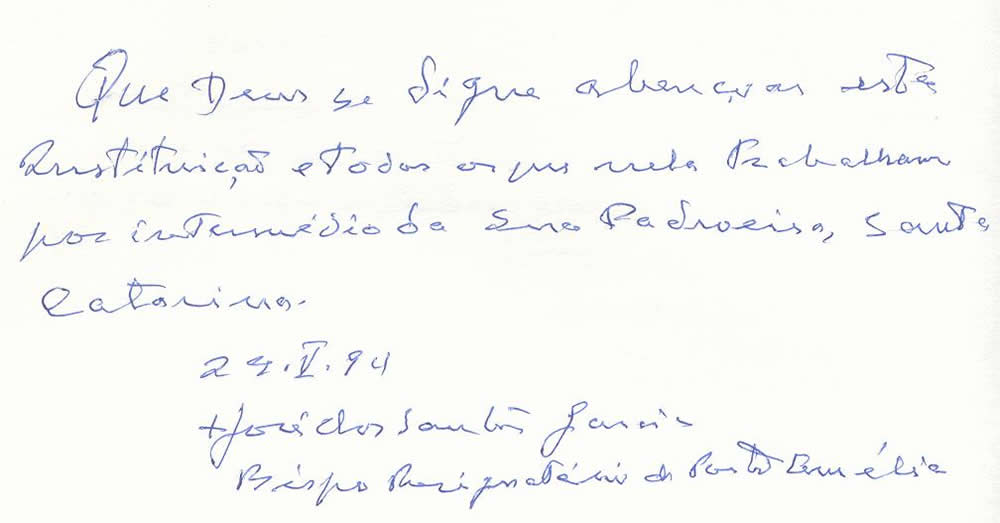 Que Deus se digne abençoar esta
Instituição e todos os que nela Trabalham
por intermédio da Sua Padroeira, Santa
Catarina.
24.V.94
+José dos Santos Garcia
Bispo Resignatário de Porto Amélia